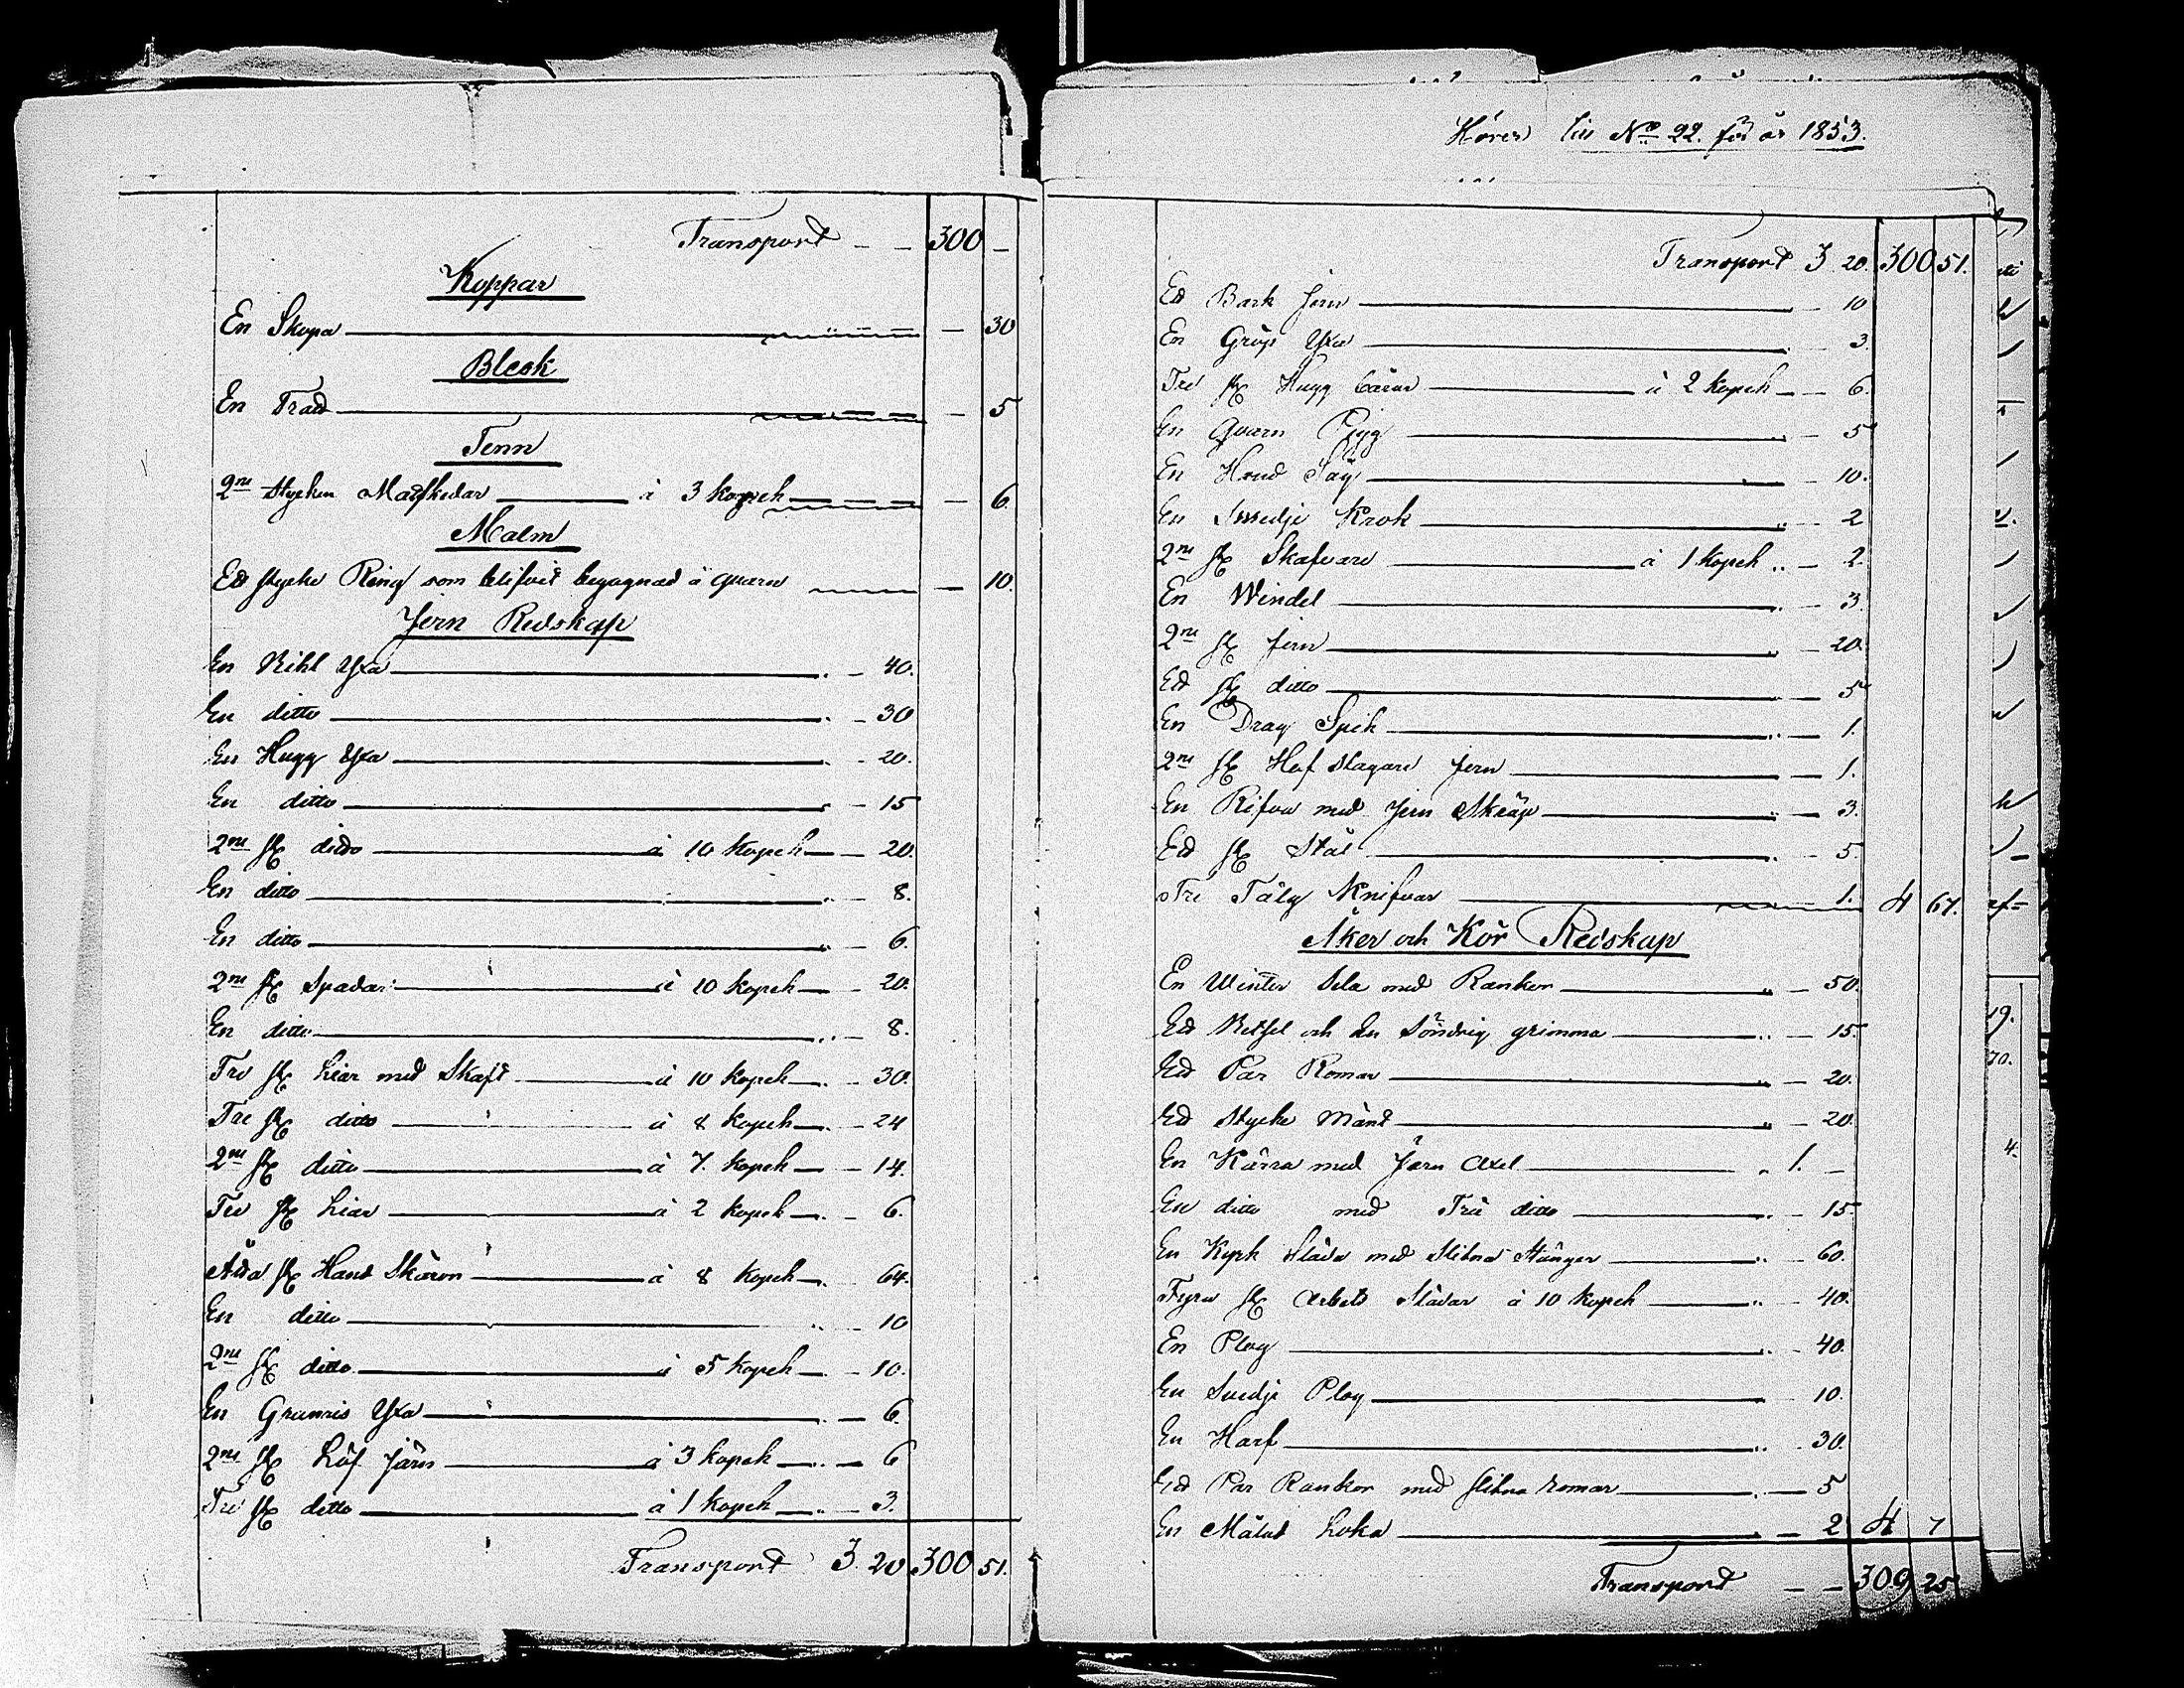 Transport - - 300 -
Koppar
En Skopa - 30
Bleck
En Tratt - 5
Tenn
2ne stycken Matskedar à 3 kopek - 6.
Malm
Ett stycke Ring som blifvit begagnad i quarn - 10.
Jern Redskap
En Bihl Yxa 40.
En ditto 30
En Hugg Yxa 20.
En ditto 15
2ne st ditto à 10 kopek 20.
En ditto 8.
En ditto 6.
2ne st Spadar à 10 kopek 20.
En ditto 8.
Tre st Liar med Skaft à 10 kopek 30.
Tre st ditto à 8 kopek 24
2ne st ditto à 7. kopek 14.
Tre st Liar à 2 kopek 6.
Åtta st Hand Skäror à 8 kopek 64.
En ditto 10
2ne st ditto à 5 kopek 10.
En Granris Yxa 6.
2ne st Löf Järn à 3 kopek 6
Tre st ditto à 1 kopek 3.
Transport 3. 20 300 51.
Hörer till No 22. för år 1853.
Transport 3 20. 300 51.
Ett Bark Jern 10
En Gröp Yxa 3.
Tre st Hugg à 2 kopek 6.
En Quarn Pigg 5
En Hand Såg 10.
En Smedje Krok 2
2ne st Skafvare à 1 kopek 2.
En Windel 3.
2ne st Jern 20.
Ett st ditto 5
En Drag Spik 1.
2ne st Hof slagare Jern 1.
En Rifva med Jern Skräp 3.
Ett st Stål 5.
Tre Tälg Knifvar 1. 4 67.
Åker och Kör Redskap
En Winter Sela med Rankor 50.
Ett Betsel och en Söndrig grimma 15
Ett Par Römar 20.
Ett Stycke 20.
En Kärra med Jern Axel 1. -
En ditto med Trä ditto 15
En Kyrk Släda med Slitna Stänger 60.
Fyra st Arbets Slädar à 10 kopek 40.
En Plog 40.
En Svedje Plog 10.
En Harf 30.
Ett Par Rankor med slitna romar 5
En Målad Loka 2 4 7
Transport - - 309 25